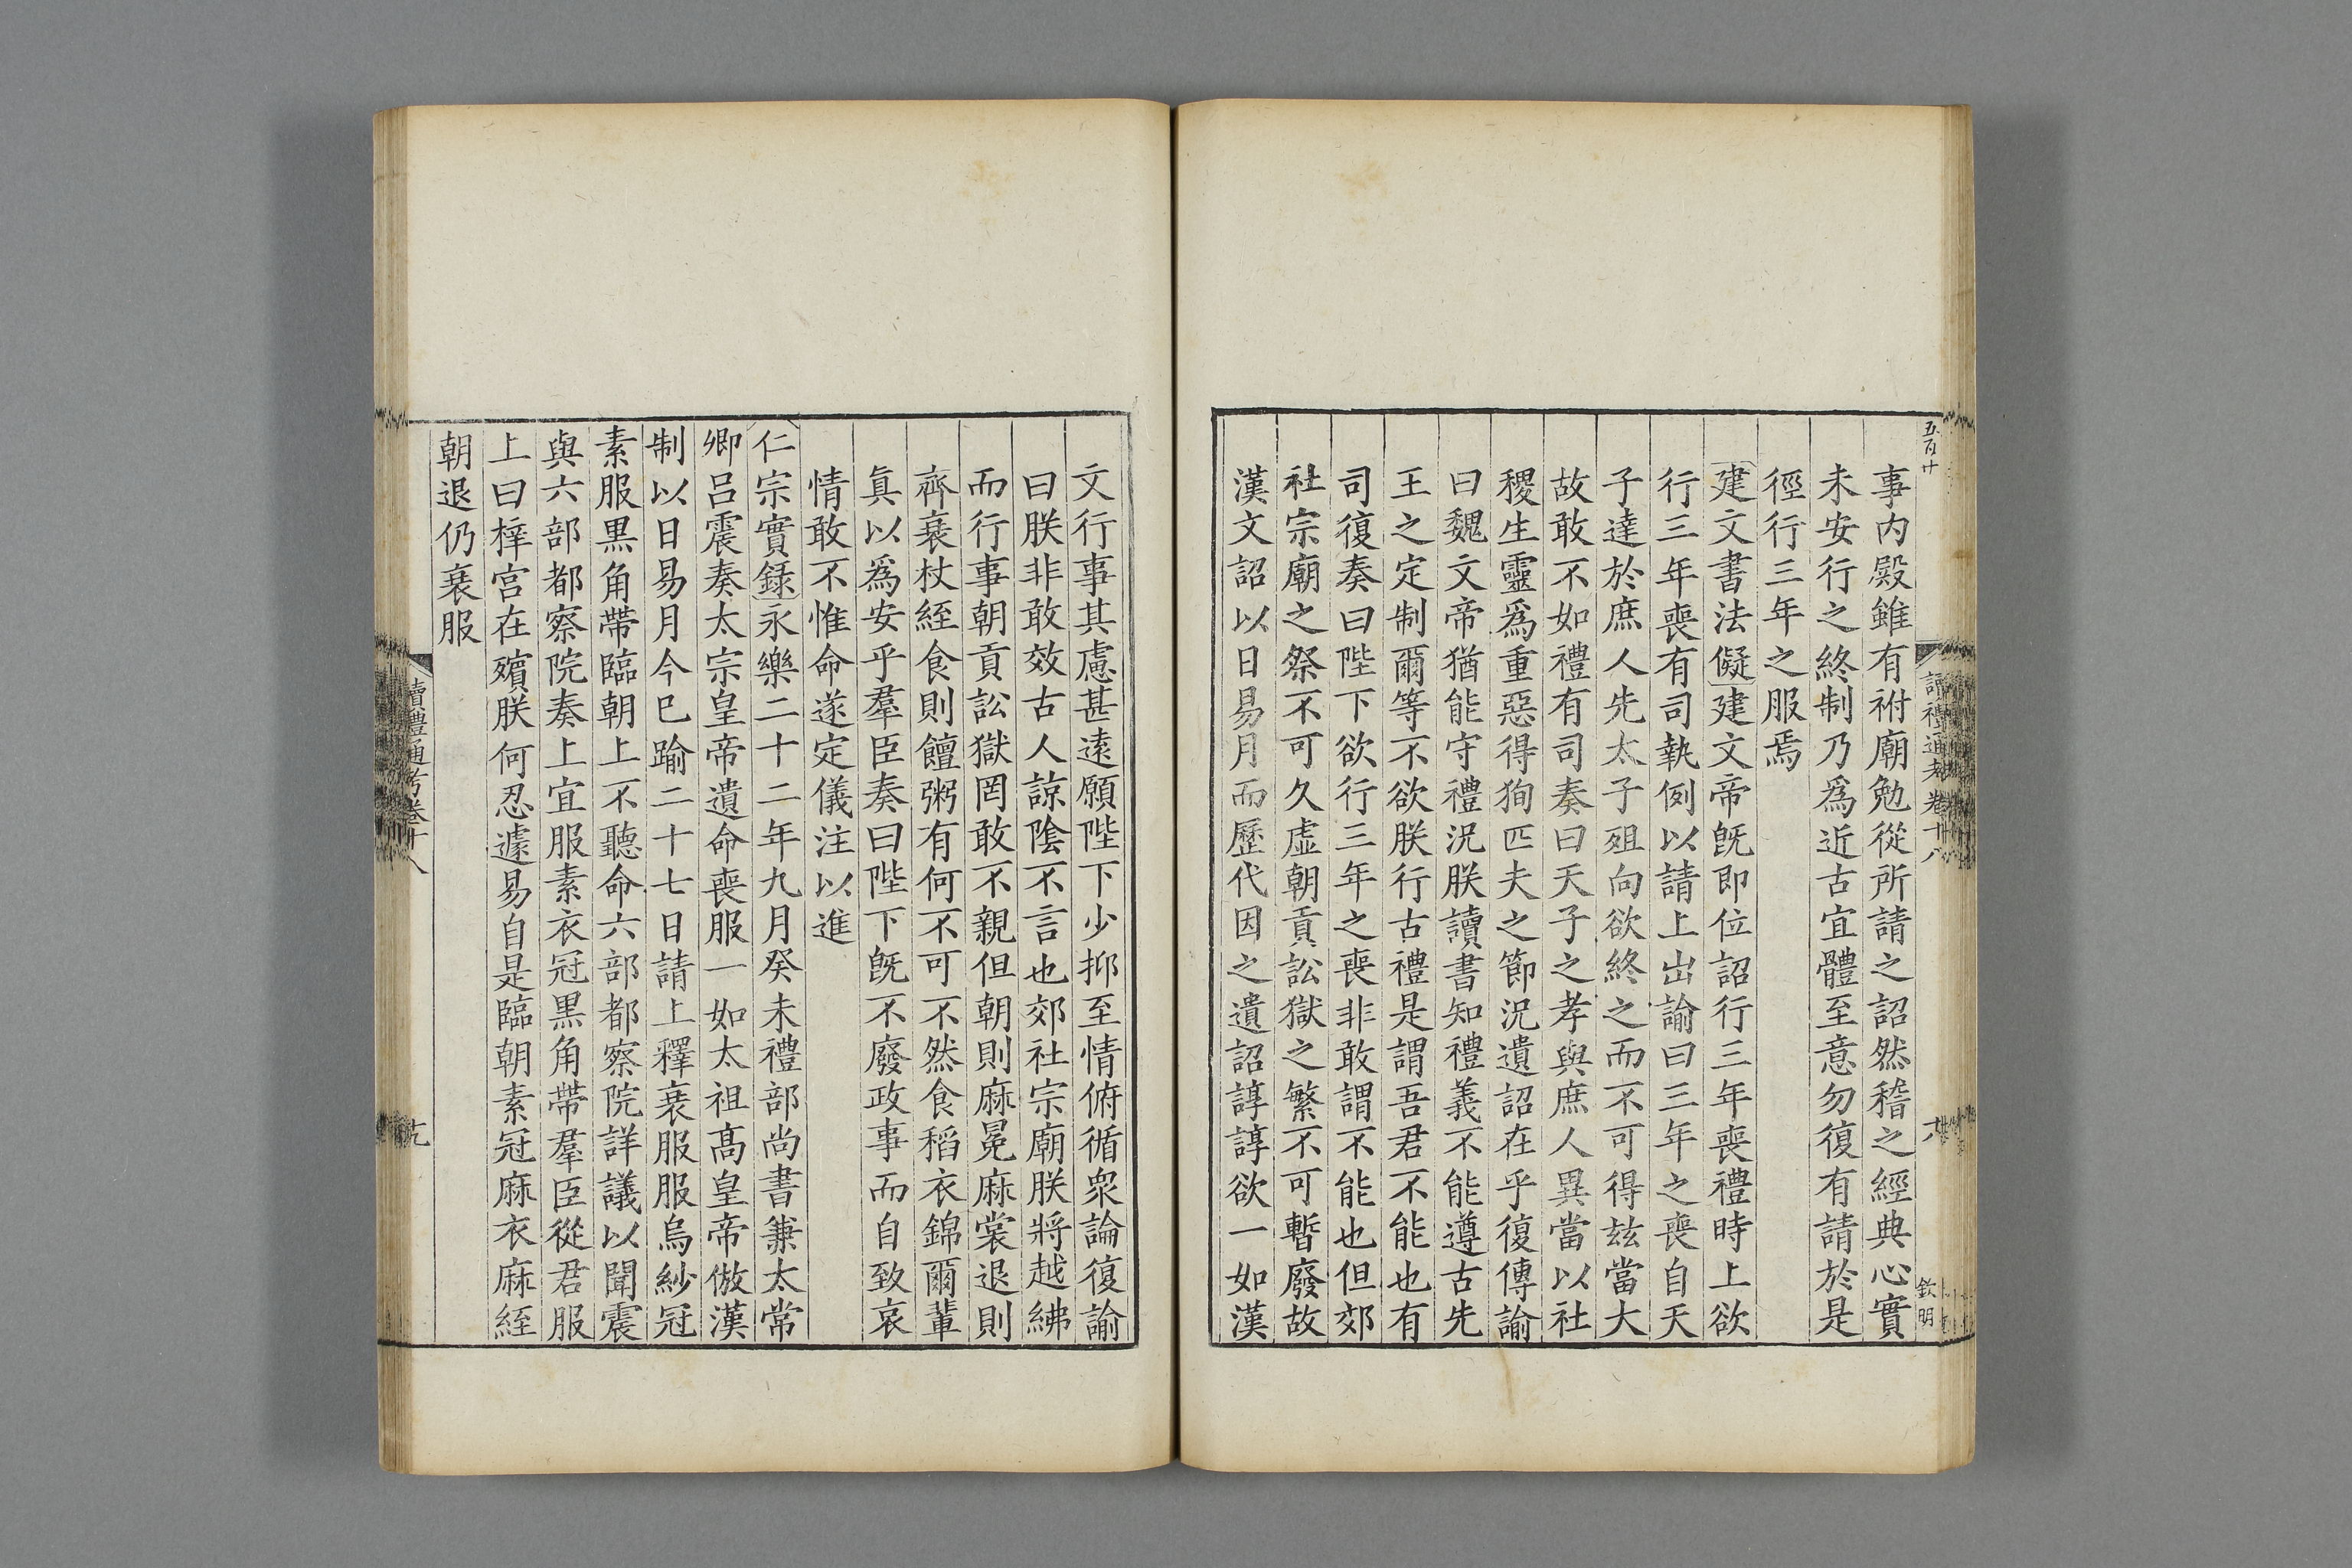 五百十
讀禮通考卷十八
六
欽明
事內殿雖有祔廟勉從所請之詔然稽之經典心實
未安行之終制乃爲近古宜體至意勿復有請於是
徑行三年之服焉
建文書法儗建文帝旣即位詔行三年喪禮時上欲
行三年喪有司執例以請上出諭曰三年之喪自天
子達於庶人先太子殂向欲終之而不可得玆當大
故敢不如禮有司奏曰天子之孝與庶人異當以社
稷生靈爲重惡得狥匹夫之節況遺詔在乎復傳諭
曰魏文帝猶能守禮況朕讀書知禮義不能遵古先
王之定制爾等不欲朕行古禮是謂吾君不能也有
司復奏曰陛下欲行三年之喪非敢謂不能也但郊
社宗廟之祭不可久虛朝貢訟獄之繁不可暫廢故
漢文詔以日易月而歷代因之遺詔諄諄欲一如漢
文行事其慮甚遠願陛下少抑至情俯循衆論復諭
曰朕非敢效古人諒陰不言也郊社宗廟朕將越紼
而行事朝貢訟獄罔敢不親但朝則麻冕麻裳退則
齊衰杖絰食則饘粥有何不可不然食稻衣錦爾輩
眞以爲安乎羣臣奏曰陛下旣不廢政事而自致哀
情敢不惟命遂定儀注以進
仁宗實錄永樂二十二年九月癸未禮部尚書兼太常
卿呂震奏太宗皇帝遺命喪服一如太祖高皇帝倣漢
制以日易月今巳踰二十七日請上釋衰服服烏紗冠
素服黑角帶臨朝上不聽命六部都察院詳議以聞震
與六部都察院奏上宜服素衣冠黑角帶羣臣從君服
上曰梓宮在殯朕何忍遽易自是臨朝素冠麻衣麻絰
朝退仍衰服
讀禮通考卷十八